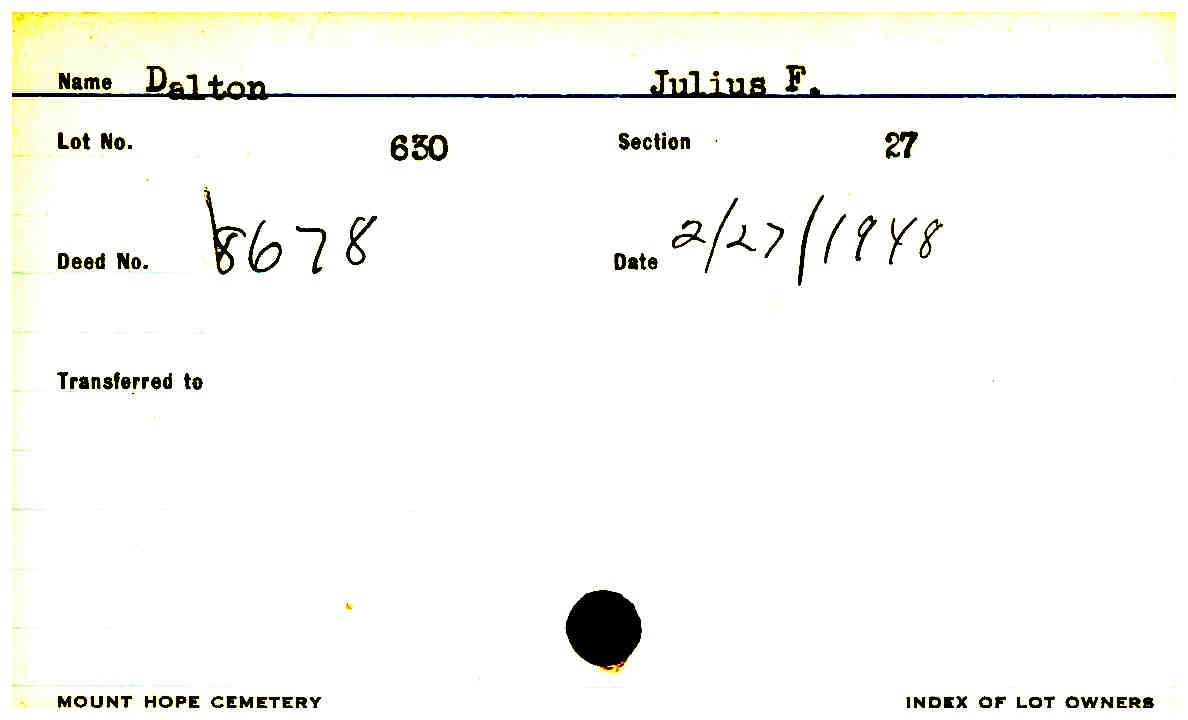 Name Dalton Julius F.
Lot No. 630 Section 27
Deed No. 8678 Date 2/27/1948
Transferred to
MOUNT HOPE CEMETERY INDEX OF LOT OWNERS